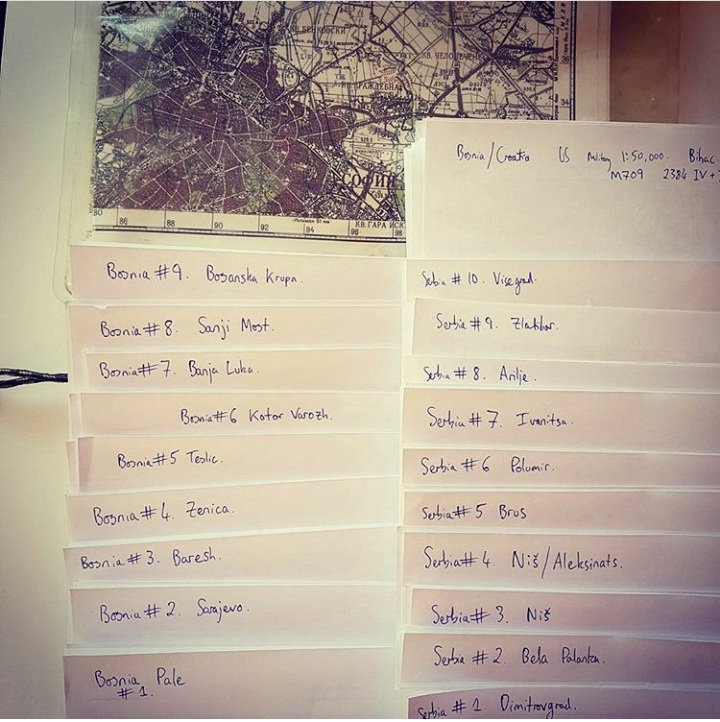 КВ. ЧЕЛОПЕЧЕНЕ
СОФИЯ
80
86
88
90
92
94
96
98
КВ. ГАРА ИСК
34
Bosnia/Croatia US Military 1:50,000. Bihac
M709 2384 IV +
Bosnia #9. Bosanska Krupa.
Bosnia #8. Sanji Most.
Bosnia #7. Banja Luka.
Bosnia #6 Kotor Varozh.
Bosnia #5 Teslic.
Bosnia #4. Zenica.
Bosnia #3. Baresh.
Bosnia #2. Sarajevo.
Bosnia Pale
#1.
Serbia #10. Visegrad.
Serbia #9. Zlatibor.
Serbia #8. Arilje.
Serbia #7. Ivanitsa.
Serbia #6 Polumir.
Serbia #5 Brus
Serbia #4. Niš/Aleksinats.
Serbia #3. Niš
Serbia #2. Bela Palanka.
Serbia #1 Dimitrovgrad.